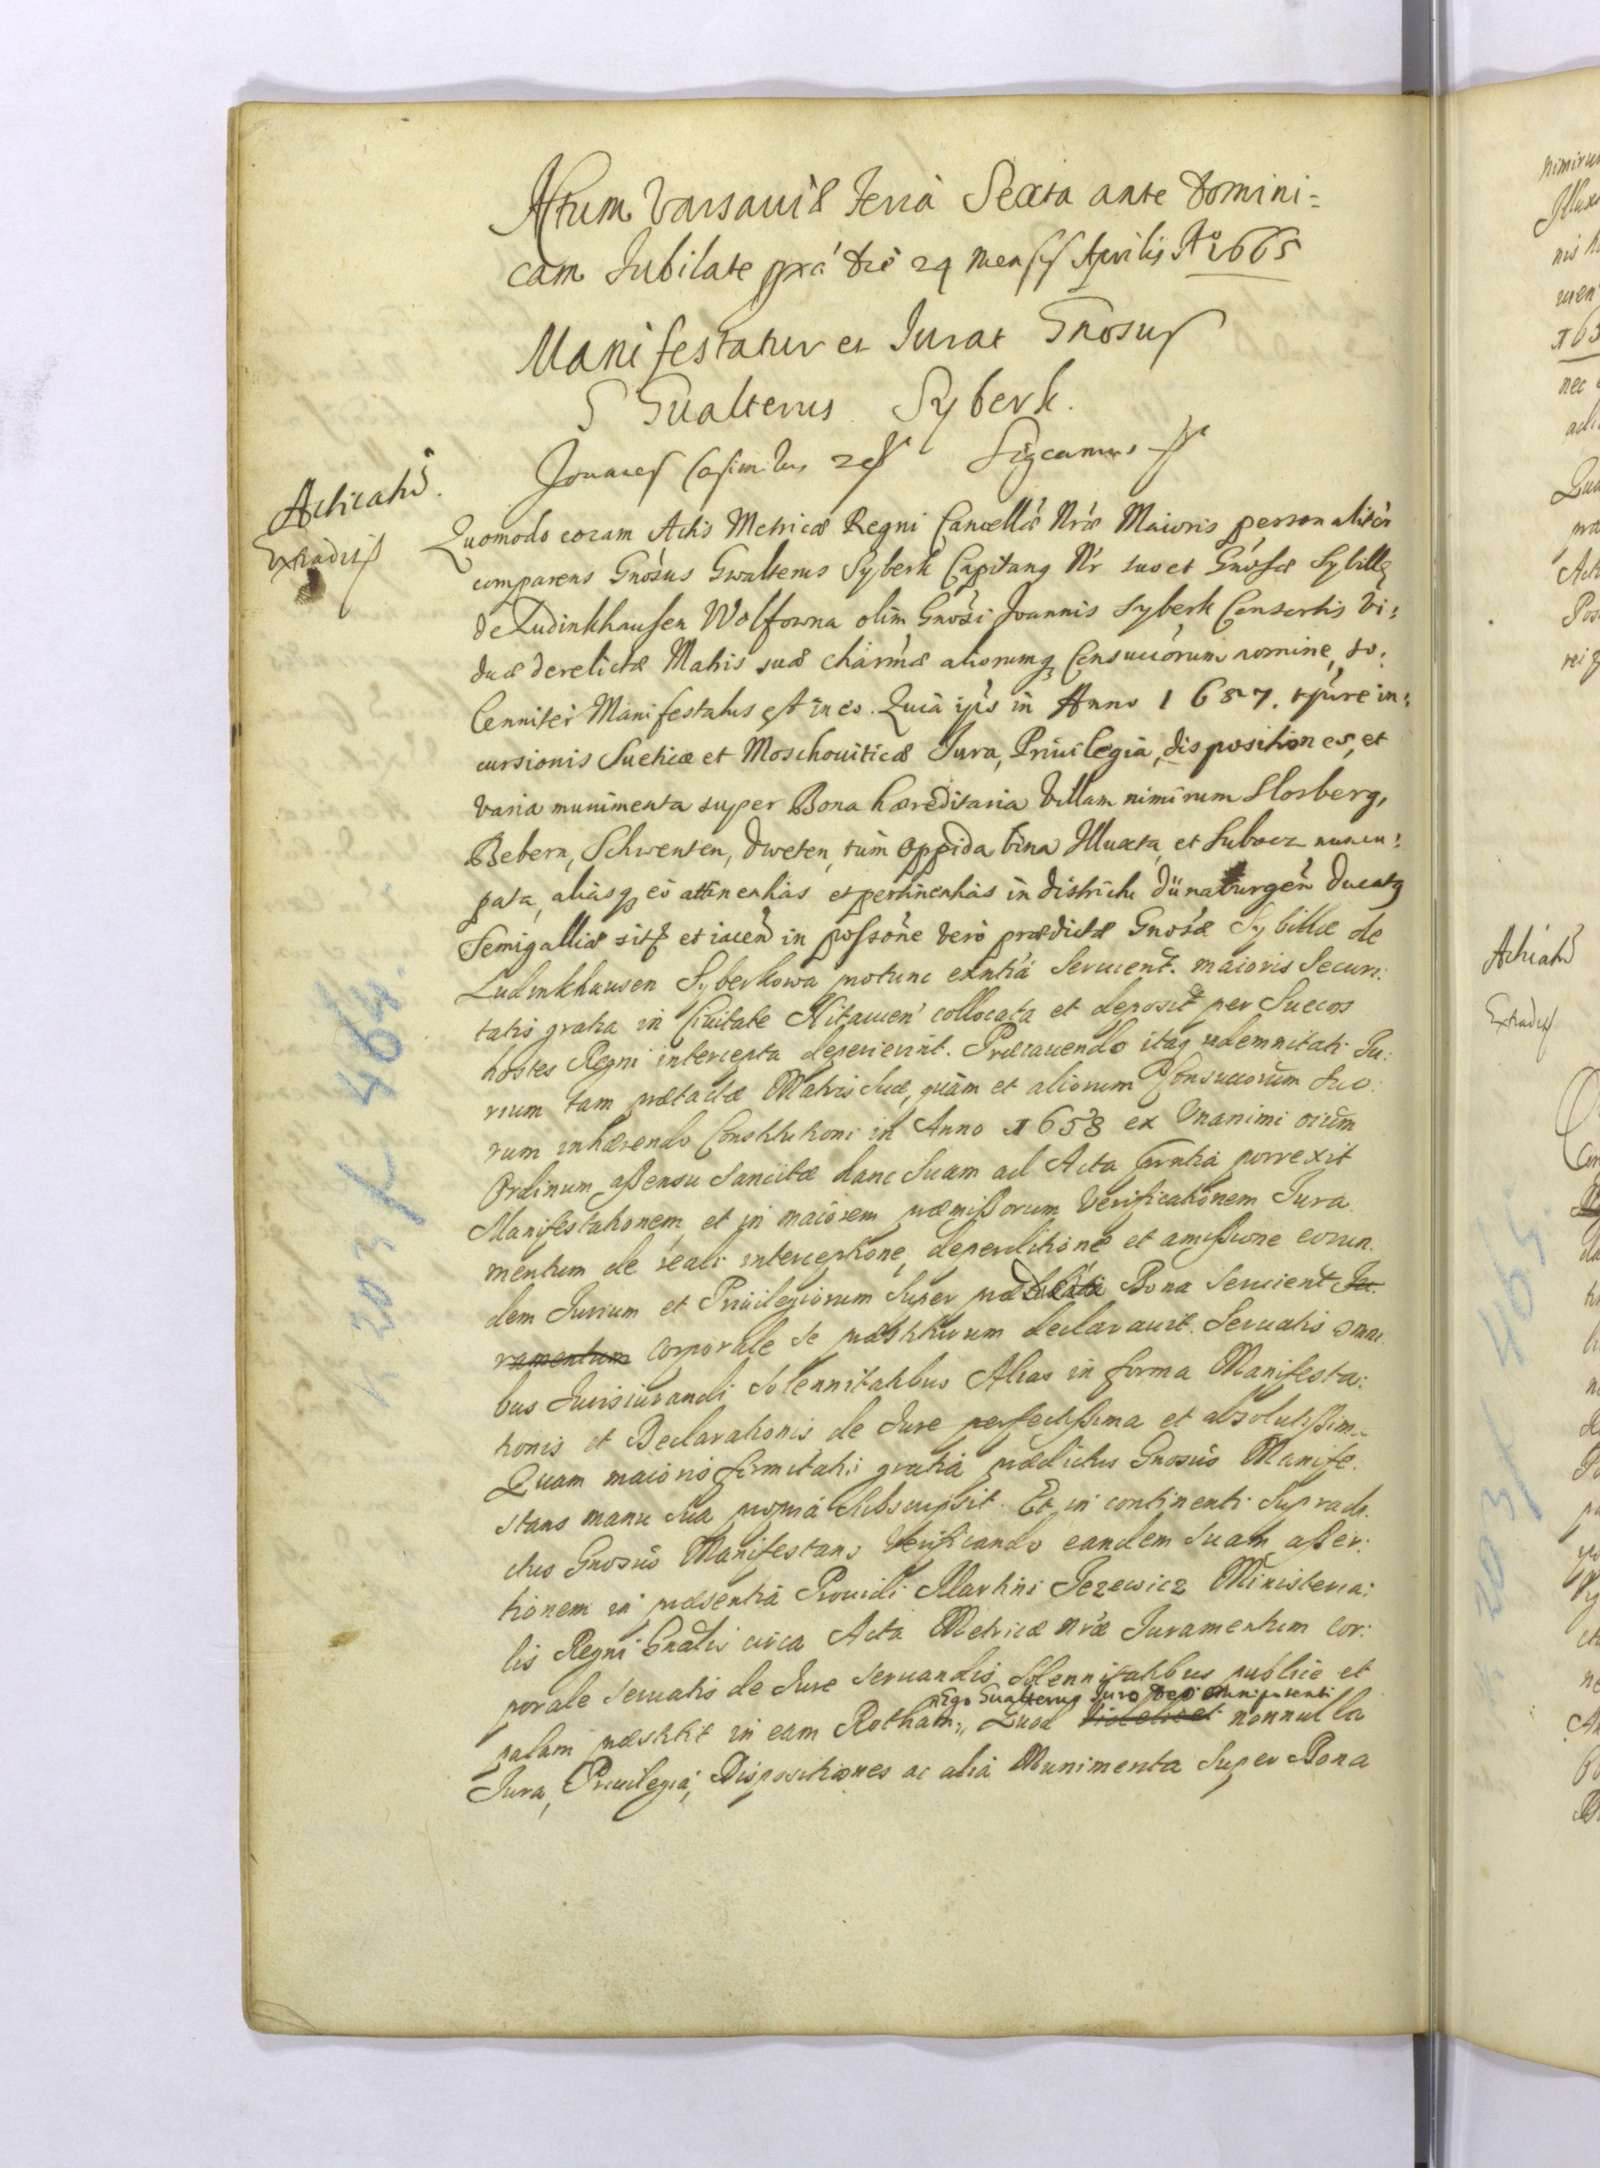 Actum Varsaviæ Feria Sexta ante Domini=
cam Jubilate pxã die 24 Mensis Aprilis Aº 1665
Manifestatur et Jurat Gnosus
Gualterus Syberk.
Joannes Casimirus
Acticatũ.
Extradit
Quomodo coram Actis Metricæ Regni Cancellæ Nræ Maioris personalitèr
comparens Gnosus Gwalterus Syberk Capitang Nr suo et Gnosæ Sybillę
de Ludinkhausen Wolfowna olim Gnosi Joannis Syberk Consortis Vi:
duæ derelictæ Matris suæ charmæ aliorumq Consuccorum nomine, so:
lenniter Manifestatus est in eo. Quia ipso in Anno 1657. tpure in:
cursionis Sueticæ et Moschouiticæ Jura, Priuilegia, dispositiones, et
varia munimenta super Bona hæreditaria Villam nimirum Slosberg,
Bebern, Schwenten, Dweten, tùm Oppida bina Illuxta, et Subocz nuncu:
pata, aliasq eo attinentias et pertinentias in districtu Dünaburgen Ducatq
Semigalliæ sitq et iacen in possone verò prædictæ Gnosæ Sybillæ de
Ludinkhausen Syberkowa protunc exntia Seruient. maioris Securi:
tatis gratia in Ciuitate Mitauien collocata et deposit per Suecos
hostes Regni intercepta deperierint. Præcauendo itaq indemnitati Ju:
rium tam prætactæ Matris Suæ, quàm et aliorum Consuccorum Suo:
rum inhærendo Constitutioni in Anno 1658 ex Vnanimi oium
Ordinum assensu Sancitæ hanc Suam ad Acta prntia porrexit
Manifestationem, et in maiorem præmissorum Verificationem Jura:
mentum de reali interceptione, deperditione et amissione eorun:
dem Jurium et Priuilegiorum Super Bona Seruient Ju:
ramentum corporale se præstiturum declarauit. Seruatis omni
bus Jurisiurandi Solennitatibus Alias in forma Manifesta:
tionis et Declarationis de Jure perfectissima et absolutissim.
Quam maioris firmitatis gratiâ prædictus Gnosus Manife:
stans manu sua propriâ Subscripsit. Et in continenti Supradi:
ctus Gnosus Manifestans Verificando eandem Suam asser:
tionem in præsentiâ Prouidi Martini Jezewicz Ministeria:
lis Regni Gnalis circa Acta Metricæ Nræ Juramentum cor:
porale Seruatis de Jure Seruandis Solennitatibus publicè et
Ego Gualterus Juro Deo Omnipotenti
palam præstitit in eam Rotham. Quod videlicet nonnulla
Jura, Priuilegia, Dispositiones ac alia Munimenta Super Bona
K 203 k 464.
Acticatũ
Extradit
K 203 k 465.